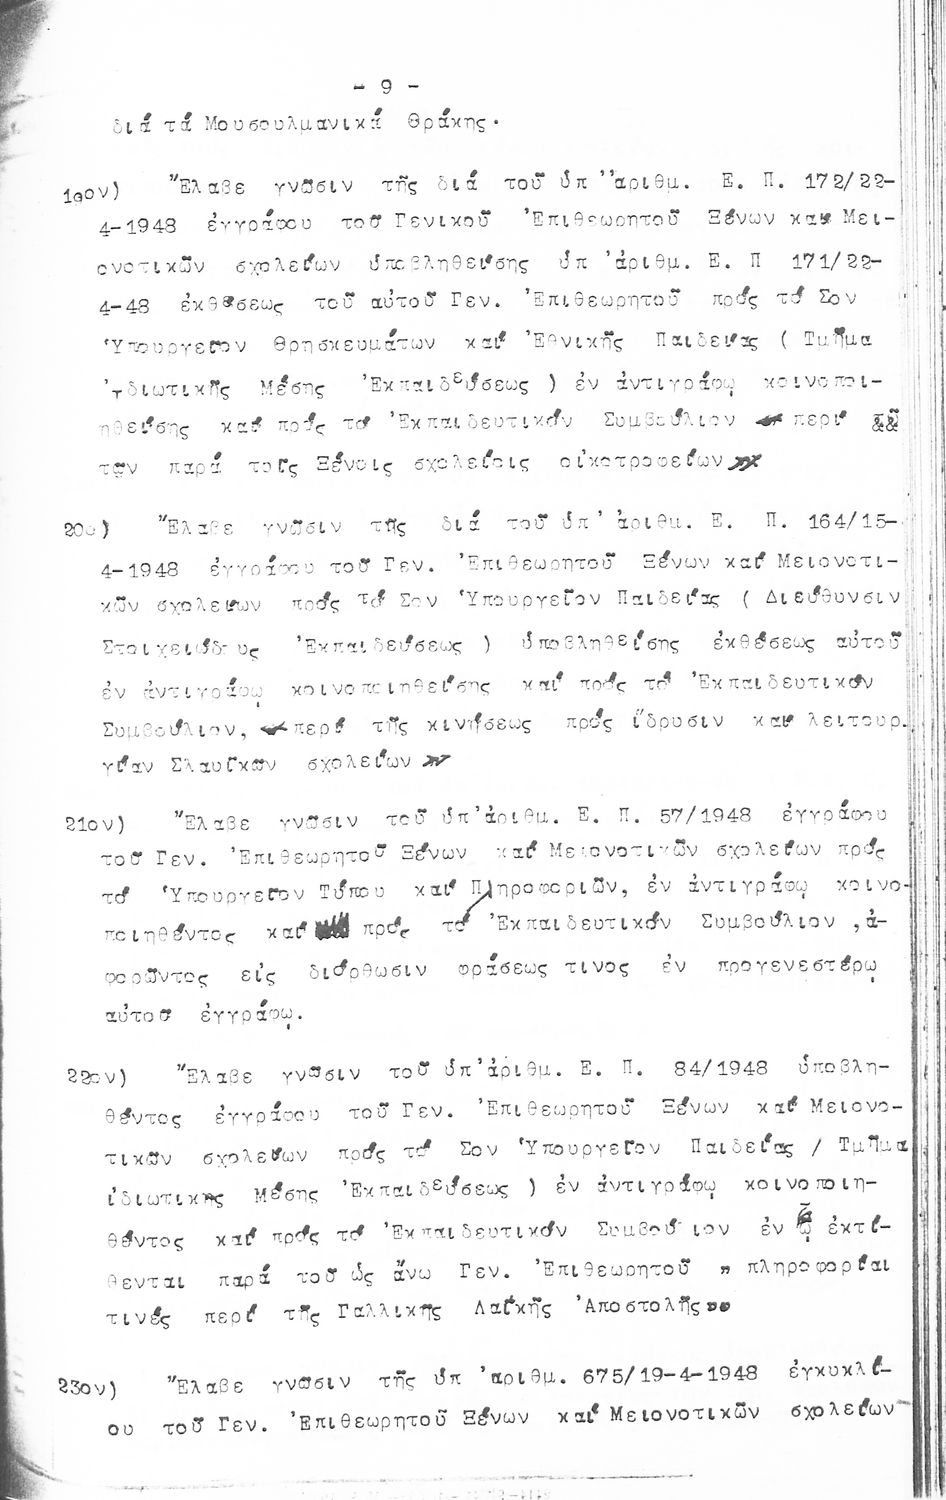 - 9 -
διά τά Μουσουλμανικά Θράκης.
19ον) Ἔλαβε γνῶσιν τῆς διά τοῦ ὑπ' ἀριθμ. Ε. Π. 172/22-
4-1948 ἐγγράφου τοῦ Γενικοῦ Ἐπιθεωρητοῦ Ξένων καί Μει-
ονοτικῶν σχολείων ὑποβληθείσης ὑπ' ἀριθμ. Ε. Π 171/22-
4-48 ἐκθέσεως τοῦ αὐτοῦ Γεν. Ἐπιθεωρητοῦ πρός τό Σον
Ὑπουργεῖον Θρησκευμάτων καί Ἐθνικῆς Παιδείας ( Τμῆμα
Ἰδιωτικῆς Μέσης Ἐκπαιδεύσεως ) ἐν ἀντιγράφῳ κοινοποι-
ηθείσης καί πρός τό Ἐκπαιδευτικόν Συμβούλιον " περί
των παρά τοῖς Ξένοις σχολείοις οἰκοτροφείων "
20ο) Ἔλαβε γνῶσιν τῆς διά τοῦ ὑπ' ἀριθμ. Ε. Π. 164/15-
4-1948 ἐγγράφου τοῦ Γεν. Ἐπιθεωρητοῦ Ξένων καί Μειονοτι-
κῶν σχολείων πρός τό Σον Ὑπουργεῖον Παιδείας ( Διεύθυνσιν
Στοιχειώδους Ἐκπαιδεύσεως ) ὑποβληθείσης ἐκθέσεως αὐτοῦ
ἐν ἀντιγράφῳ κοινοποιηθείσης καί πρός τό Ἐκπαιδευτικόν
Συμβούλιον, " περί τῆς κινήσεως πρός ἵδρυσιν καί λειτουρ.
γίαν Σλαυϊκῶν σχολείων "
21ον) Ἔλαβε γνῶσιν τοῦ ὑπ' ἀριθμ. Ε. Π. 57/1948 ἐγγράφου
τοῦ Γεν. Ἐπιθεωρητοῦ Ξένων καί Μειονοτικῶν σχολείων πρός
τό Ὑπουργεῖον Τύπου καί Πληροφοριῶν, ἐν ἀντιγράφῳ κοινο-
ποιηθέντος καί πρός τό Ἐκπαιδευτικόν Συμβούλιον , ἀ-
φορῶντος εἰς διόρθωσιν φράσεως τινος ἐν προγενεστέρῳ
αὐτοῦ ἐγγράφῳ.
22ον) Ἔλαβε γνῶσιν τοῦ ὑπ' ἀριθμ. Ε. Π. 84/1948 ὑποβλη-
θέντος ἐγγράφου τοῦ Γεν. Ἐπιθεωρητοῦ Ξένων καί Μειονο-
τικῶν σχολείων πρός τό Σον Ὑπουργεῖον Παιδείας / Τμῆμα
ἰδιωτικῆς Μέσης Ἐκπαιδεύσεως ) ἐν ἀντιγράφῳ κοινοποιη-
θέντος καί πρός τό Ἐκπαιδευτικόν Συμβούλιον ἐν ᾧ ἐκτί-
θενται παρά τοῦ ὡς ἄνω Γεν. Ἐπιθεωρητοῦ " πληροφορίαι
τινές περί τῆς Γαλλικῆς Λαϊκῆς Ἀποστολῆς "
23ον) Ἔλαβε γνῶσιν τῆς ὑπ' ἀριθμ. 675/19-4-1948 ἐγκυκλί-
ου τοῦ Γεν. Ἐπιθεωρητοῦ Ξένων καί Μειονοτικῶν σχολείων